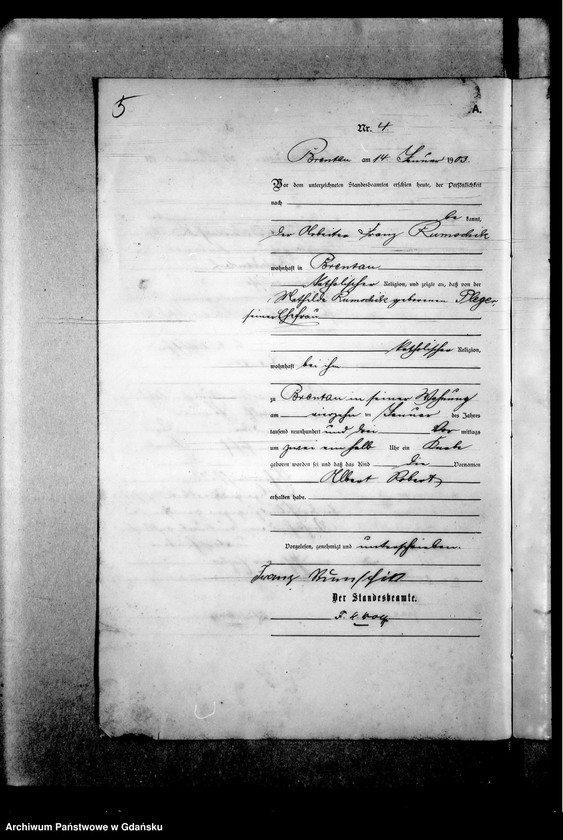 5
A.
Nr. 4
Brentau am 14 Januar 1903.
Vor dem unterzeichneten Standesbeamten erschien heute, der Persönlichkeit
nach
be kannt,
der Arbeiter Franz Rumschik
wohnhaft in Brentau
katholischer Religion, und zeigte an, daß von der
Mathilde Rumschik geborenen Pleger,
seiner Ehefrau
katholischer Religion,
wohnhaft bei ihm
zu Brentau in seiner Wohnung
am vierzehn ten Januar des Jahres
tausend neunhundert und drei Vor mittags
um zwei ein halb Uhr ein Knabe
geboren worden sei und daß das Kind die Vornamen
Albert Robert
erhalten habe.
Vorgelesen, genehmigt und unterschrieben.
Franz
Der Standesbeamte.
Archiwum Państwowe w Gdańsku